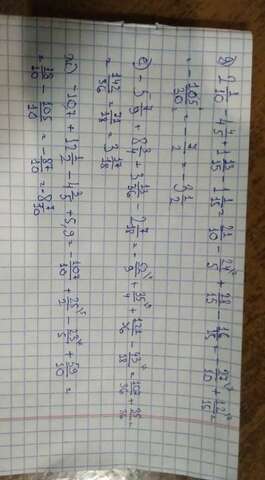 д) 2 1/10 - 4 4/5 + 1 13/15 - 1 1/15 = 21/10 - 24/5 + 28/15 - 16/15 = - 27/10 + 12/15 =
= - 105/30 = - 7/2 = - 3 1/2
е) - 5 7/9 + 8 3/4 + 3 19/36 - 2 7/18 = - 52/9 + 35/4 + 127/36 - 43/18 = 107/36 + 35/36 =
= 142/36 = 71/18 = 3 17/18
ж) -10,7 + 12 1/2 - 4 3/5 + 5,9 = 107/10 + 25/2 - 23/5 + 59/10 =
= 18/10 - 105/10 = - 87/10 = - 8 7/10